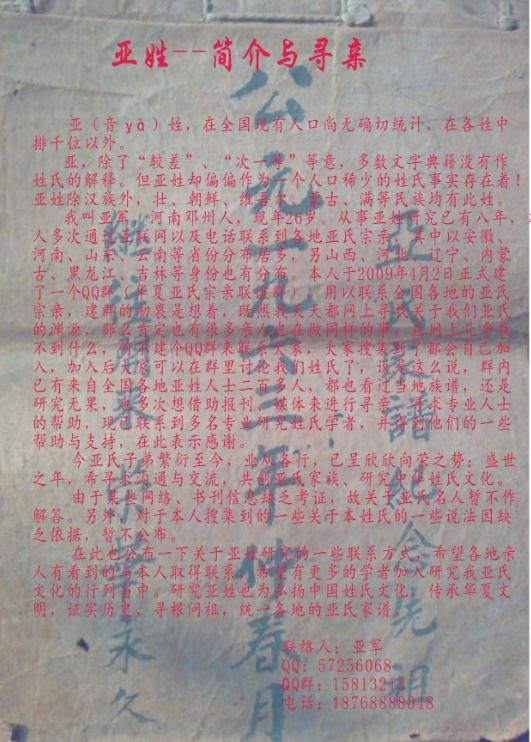 亚姓--简介与寻亲
亚（音yà）姓，在全国现有人口尚无确切统计，在各姓中
排千位以外。
亚，除了“较差”、“次一等”等意，多数文字典籍没有作
姓氏的解释。但亚姓却偏偏作为一个人口稀少的姓氏事实存在着！
亚姓除汉族外，壮、朝鲜、维吾尔、蒙古、满等民族均有此姓。
我叫亚军，河南邓州人，现年26岁。从事亚姓研究已有八年，本
人多次通过互联网以及电话联系到各地亚氏宗亲，其中以安徽、
河南、山东、云南等省份分布居多，另山西、河北、辽宁、内蒙
古、黑龙江、吉林等身份也有分布。本人于2009年4月2日正式建
了一个QQ群（华夏亚氏宗亲联谊群），用以联系全国各地的亚氏
宗亲，建群的初衷是想着，既然我天天都网上寻找关于我们亚氏
的渊源，那么肯定也有很多亲人也在做同样的事，在网上几乎找
不到什么，何不建个QQ群来联系大家，大家搜集到了都会自己加
入，加入后大家可以在群里讨论我们姓氏了，说是这么说，群内
已有来自全国各地亚姓人士二百多人，都也看过当地族谱，还是
研究无果，也多次想借助报刊、媒体来进行寻亲，寻求专业人士
的帮助，现已联系到多名专业研究姓氏学者，并得到他们的一些
帮助与支持，在此表示感谢。
今亚氏子弟繁衍至今，业从各行，已呈欣欣向荣之势；盛世
之年，希寻亲沟通与交流，共创亚氏家族、研究中华姓氏文化。
由于某些网络、书刊信息缺乏考证，故关于亚氏名人暂不作
解答。另外，对于本人搜集到的一些关于本姓氏的一些说法因缺
乏依据，暂不公布。
在此也公布一下关于亚姓研究的一些联系方式，希望各地亲
人有看到的与本人取得联系，希望有更多的学者加入研究我亚氏
文化的行列当中。研究亚姓也为弘扬中国姓氏文化，传承华夏文
明，证实历史，寻根问祖，统一各地的亚氏家谱。
联络人：亚军
QQ：57256068
QQ群：15813213
电话：18768888048
亚氏图谱 念先祖
公元一九 三年 春月
继往开来 永久